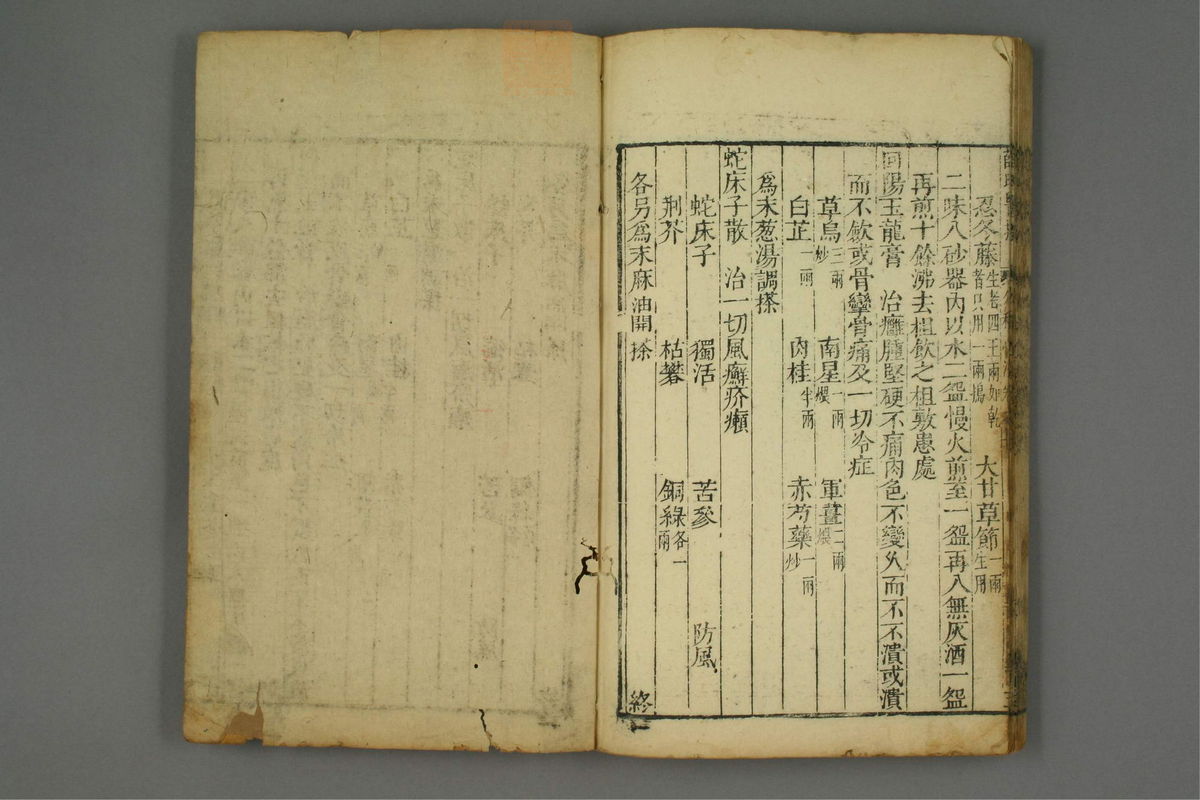 忍冬藤生者四五兩如乾者只用一兩搗　大甘草節一兩生用
二味入砂器內以水二盌慢火煎至一盌再入無灰酒一盌
再煎十餘沸去柤飲之柤敷患處
回陽玉龍膏　治癰腫堅硬不痛肉色不變久而不不潰或潰
而不飲或骨攣骨痛及一切冷症
草烏三兩炒　南星一兩煨　軍薑二兩煨
白芷一兩　肉桂半兩　赤芍藥一兩炒
為末葱湯調搽
蛇床子散　治一切風癬疥癩
蛇床子　獨活　苦參　防風
荆芥　枯礬　銅綠各一兩
各另為末麻油開搽　終